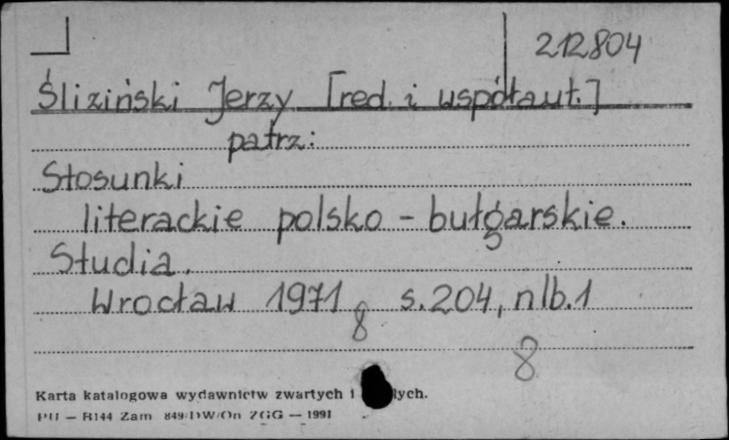 212804
Śliziński Jerzy [red. i współaut.]
patrz:
Stosunki
literackie polsko - bułgarskie.
Studia.
Wrocław 1971 s. 204, nlb. 1
8
8
Karta katalogowa wydawnictw zwartych i
PU — R144 Zam 849/DW/On ZGG — 1991